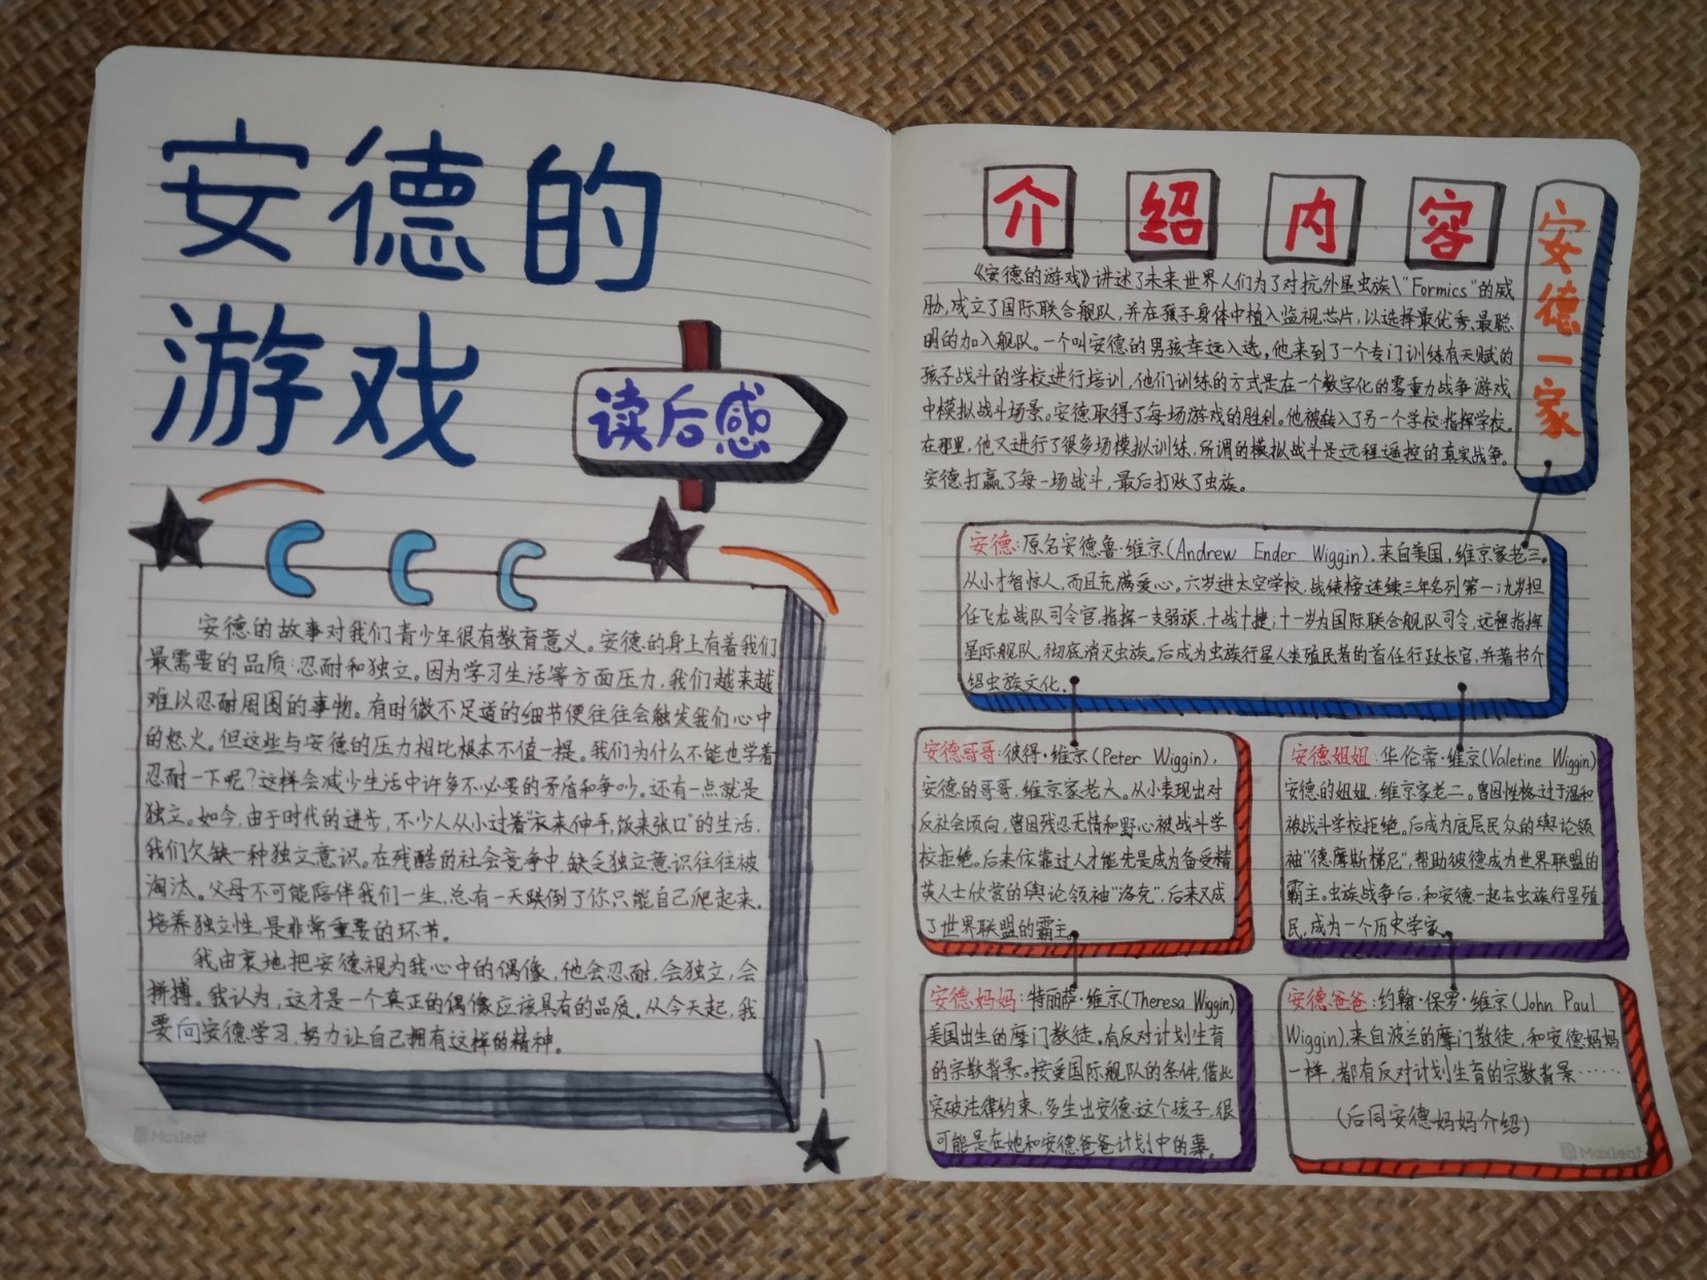 安德的
游戏
读后感
安德的故事对我们青少年很有教育意义。安德的身上有着我们
最需要的品质:忍耐和独立。因为学习生活等方面压力,我们越来越
难以忍耐周围的事物。有时微不足道的细节便往往会触发我们心中
的怒火。但这些与安德的压力相比根本不值一提。我们为什么不能也学着
忍耐一下呢?这样会减少生活中许多不必要的矛盾和争吵。还有一点就是
独立。如今,由于时代的进步,不少人从小过着"衣来伸手,饭来张口"的生活,
我们欠缺一种独立意识。在残酷的社会竞争中,缺乏独立意识往往被
淘汰。父母不可能陪伴我们一生,总有一天跌倒了你只能自己爬起来。
培养独立性,是非常重要的环节。
我由衷地把安德视为我心中的偶像,他会忍耐,会独立,会
拼搏。我认为,这才是一个真正的偶像应该具有的品质。从今天起,我
要向安德学习,努力让自己拥有这样的精神。
Maxleaf
介绍内容
《安德的游戏》讲述了未来世界人们为了对抗外星虫族\"Formics"的威
胁,成立了国际联合舰队,并在孩子身体中植入监视芯片,以选择最优秀、最聪
明的加入舰队。一个叫安德的男孩幸运入选。他来到了一个专门训练有天赋的
孩子战斗的学校进行培训,他们训练的方式是在一个数字化的零重力战争游戏
中模拟战斗场景。安德取得了每场游戏的胜利。他被转入了另一个学校:指挥学校。
在那里,他又进行了很多场模拟训练,所谓的模拟战斗是远程遥控的真实战争。
安德打赢了每一场战斗,最后打败了虫族。
安德一家
安德:原名安德鲁·维京(Andrew Ender Wiggin),来自美国,维京家老三。
从小才智惊人,而且充满爱心。六岁进太空学校,战绩榜连续三年名列第一;九岁担
任飞龙战队司令官,指挥一支弱旅,十战十捷;十一岁为国际联合舰队司令,远程指挥
星际舰队,彻底消灭虫族。后成为虫族行星人类殖民者的首任行政长官,并著书介
绍虫族文化。
安德哥哥:彼得·维京(Peter Wiggin),
安德的哥哥,维京家老大。从小表现出对
反社会倾向,曾因残忍无情和野心被战斗学
校拒绝。后来依靠过人才能先是成为备受精
英人士欣赏的舆论领袖"洛克",后来又成
了世界联盟的霸主。
安德姐姐:华伦蒂·维京(Valetine Wiggin)
安德的姐姐,维京家老二。曾因性格过于温和
被战斗学校拒绝。后成为底层民众的舆论领
袖"德摩斯梯尼",帮助彼德成为世界联盟的
霸主。虫族战争后,和安德一起去虫族行星殖
民,成为一个历史学家。
安德妈妈:特丽萨·维京(Theresa Wiggin)
美国出生的摩门教徒。有反对计划生育
的宗教背景。接受国际舰队的条件,借此
突破法律约束,多生出安德这个孩子,很
可能是在她和安德爸爸计划中的事。
安德爸爸:约翰·保罗·维京(John Paul
Wiggin),来自波兰的摩门教徒,和安德妈妈
一样,都有反对计划生育的宗教背景……
(后同安德妈妈介绍)
Maxleaf